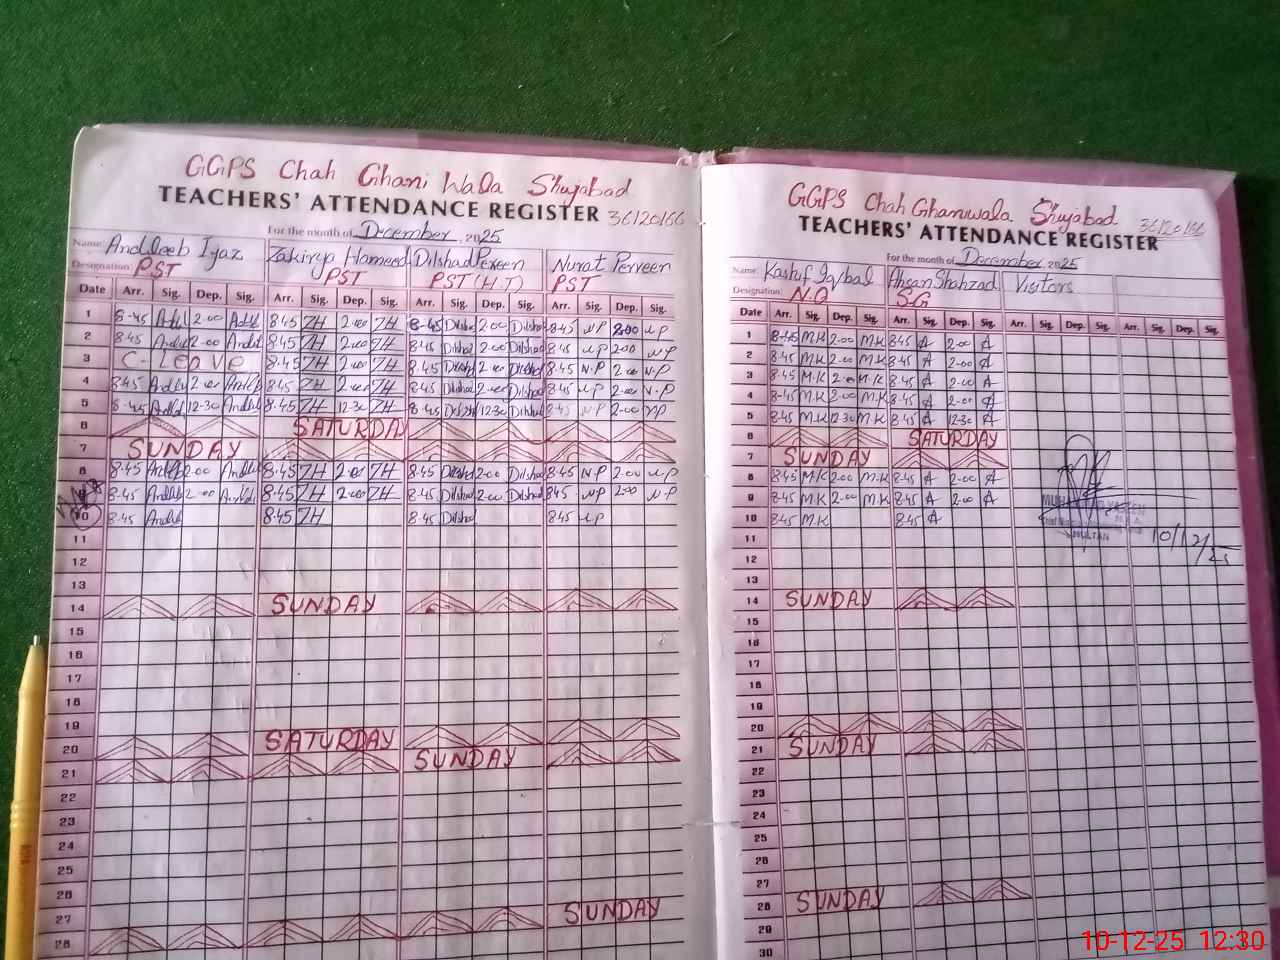 GGPS Chah Ghani Wala Shujabad
TEACHERS' ATTENDANCE REGISTER 36120166
For the month of December 2025
Name: Andleeb Ijaz Zakirya Hameed Dilshad Perveen Nusrat Perveen
Designation: PST PST PST (H.T) PST
Date Arr. Sig. Dep. Sig. Arr. Sig. Dep. Sig. Arr. Sig. Dep. Sig. Arr. Sig. Dep. Sig.
1 8-45 2-00 8-45 ZH 2-00 ZH 8-45 Dilshad 2-00 Dilshad 8-45 N P 2-00 N P
2 8-45 2-00 8-45 ZH 2-00 ZH 8-45 Dilshad 2-00 Dilshad 8-45 N P 2-00 N P
3 C-Leave 8-45 ZH 2-00 ZH 8-45 Dilshad 2-00 Dilshad 8-45 N.P 2-00 N.P
4 8-45 2-00 8-45 ZH 2-00 ZH 8-45 Dilshad 2-00 Dilshad 8-45 N.P 2-00 N.P
5 8-45 12-30 8-45 ZH 12-30 ZH 8-45 Dilshad 12-30 Dilshad 8-45 N P 2-00 N P
6 SATURDAY
7 SUNDAY
8 8-45 2-00 8-45 ZH 2-00 ZH 8-45 Dilshad 2-00 Dilshad 8-45 N.P 2-00 N P
9 8-45 2-00 8-45 ZH 2-00 ZH 8-45 Dilshad 2-00 Dilshad 8-45 N P 2-00 N P
10 8-45 8-45 ZH 8-45 Dilshad 8-45 N P
11
12
13
14 SUNDAY
15
16
17
18
19
20 SATURDAY
21 SUNDAY
22
23
24
25
26
27 SUNDAY
28
GGPS Chah Ghaniwala Shujabad
36120166
TEACHERS' ATTENDANCE REGISTER
For the month of December 2025
Name: Kashif Iqbal Ahsan Shahzad Visitors
Designation: N.Q S-G
Date Arr. Sig. Dep. Sig. Arr. Sig. Dep. Sig. Arr. Sig. Dep. Sig. Arr. Sig. Dep. Sig.
1 8-45 M.K 2-00 M.K 8-45 A 2-00 A
2 8-45 M.K 2-00 M.K 8-45 A 2-00 A
3 8-45 M.K 2-00 M.K 8-45 A 2-00 A
4 8-45 M.K 2-00 M.K 8-45 A 2-00 A
5 8-45 M.K 12-30 M.K 8-45 A 12-30 A
6 SATURDAY
7 SUNDAY
8 8-45 M.K 2-00 M.K 8-45 A 2-00 A
9 8-45 M.K 2-00 M.K 8-45 A 2-00 A
10 8-45 M.K 8-45 A
MULTAN
10/12/25
11
12
13
14 SUNDAY
15
16
17
18
19
20
21 SUNDAY
22
23
24
25
26
27
28 SUNDAY
29
30
10-12-25 12:30